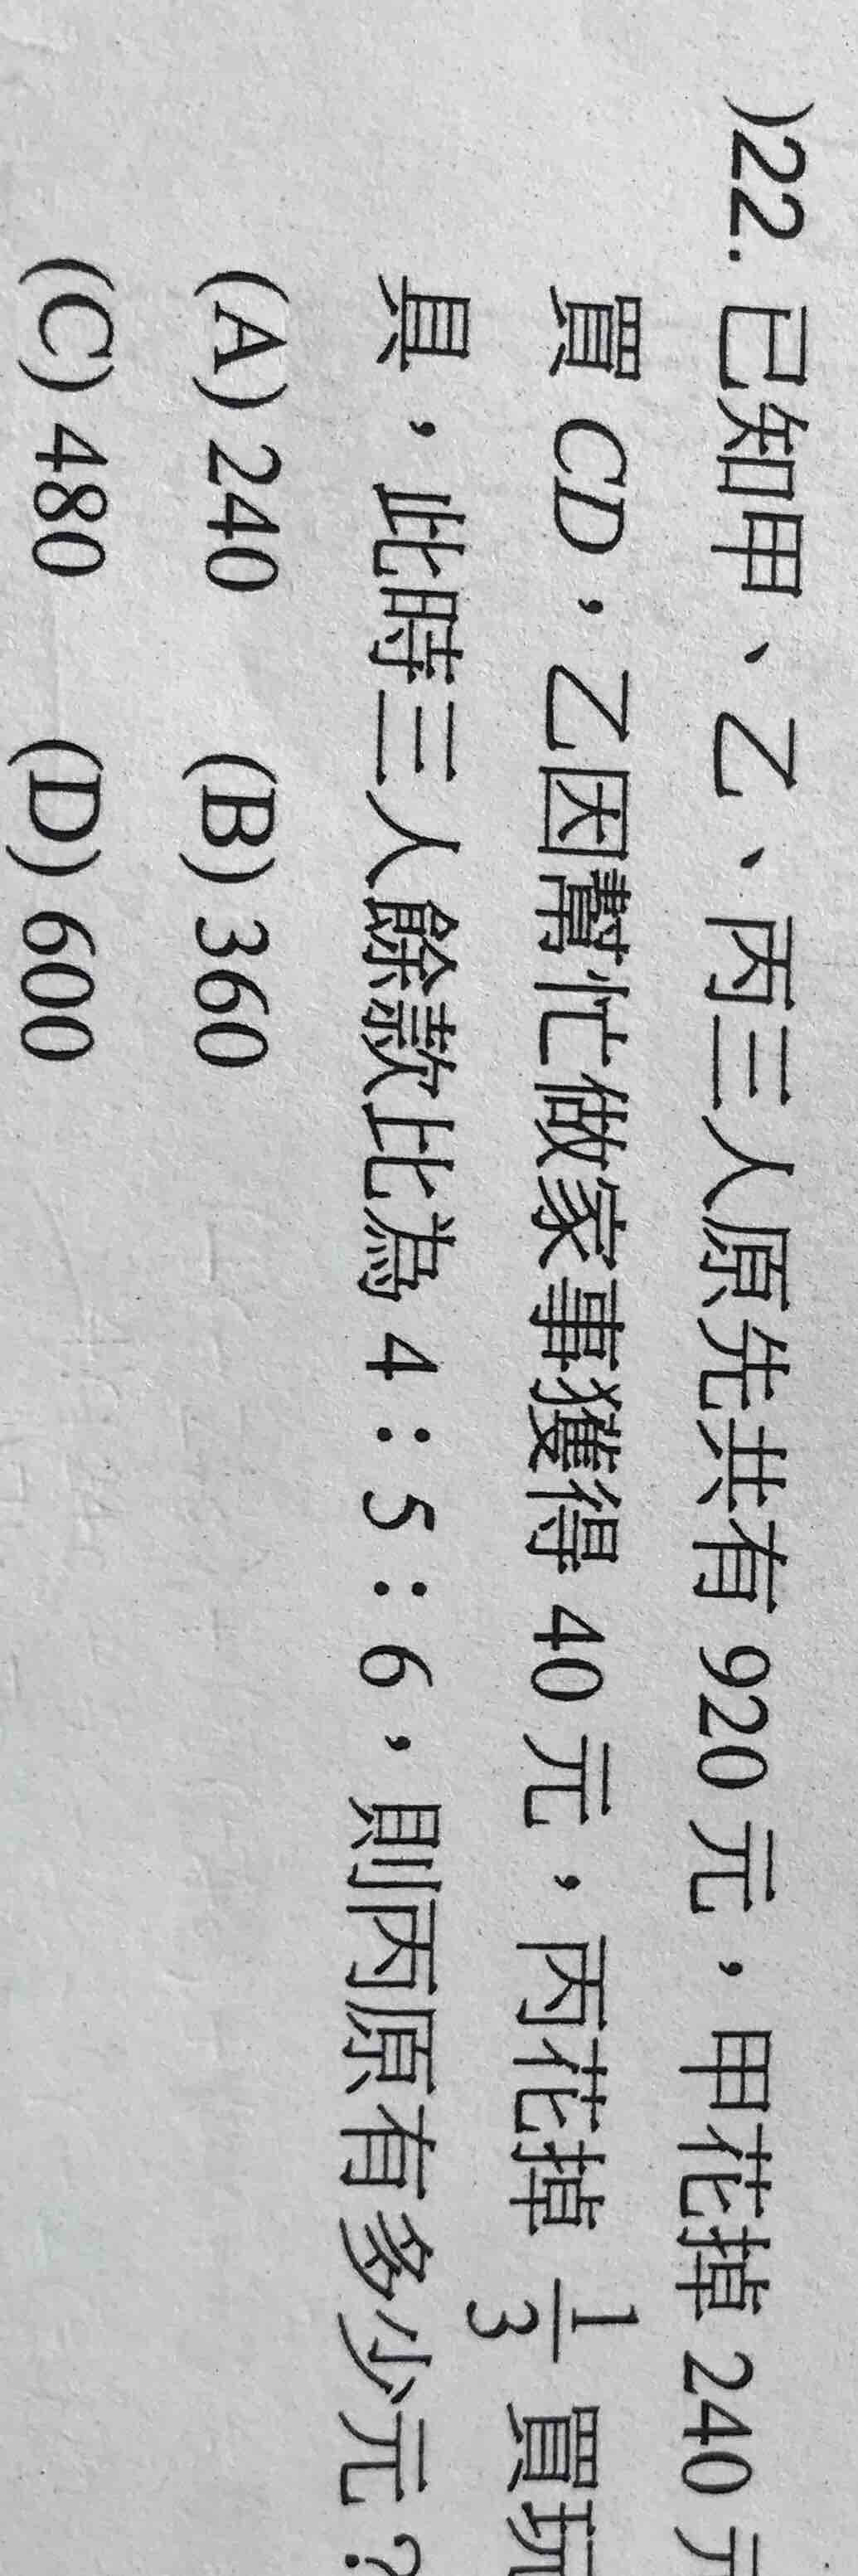 )22. 已知甲、乙、丙三人原先共有 920 元，甲花掉 240 元
買 CD，乙因幫忙做家事獲得 40 元，丙花掉 1/3 買玩
具，此時三人餘款比為 4：5：6，則丙原有多少元？
(A) 240 (B) 360
(C) 480 (D) 600